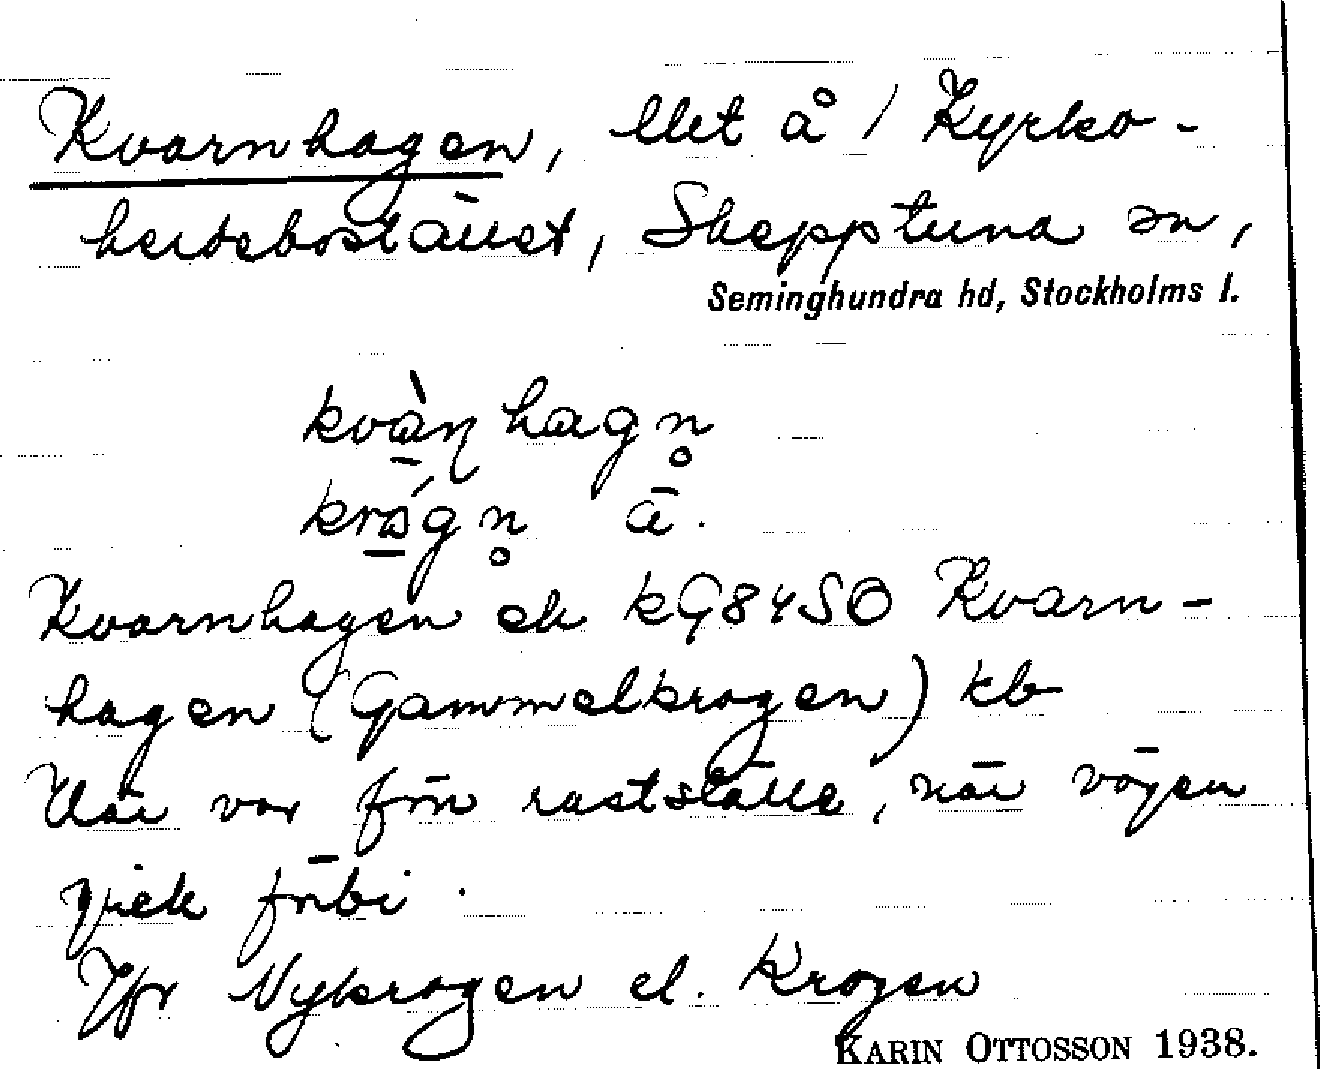 Kvarnhagen, llet å / Kyrko-
herdebostället, Skepptuna sn,
Seminghundra hd, Stockholms l.
kvàṇhagn̥
krǻgn̥ ā.
Kvarnhagen ek kG84SO Kvarn-
hagen (Gammelkrogen) kb
Där var förr rastställe, när vägen
gick förbi.
Jfr Nykrogen el. Krogen
KARIN OTTOSSON 1938.